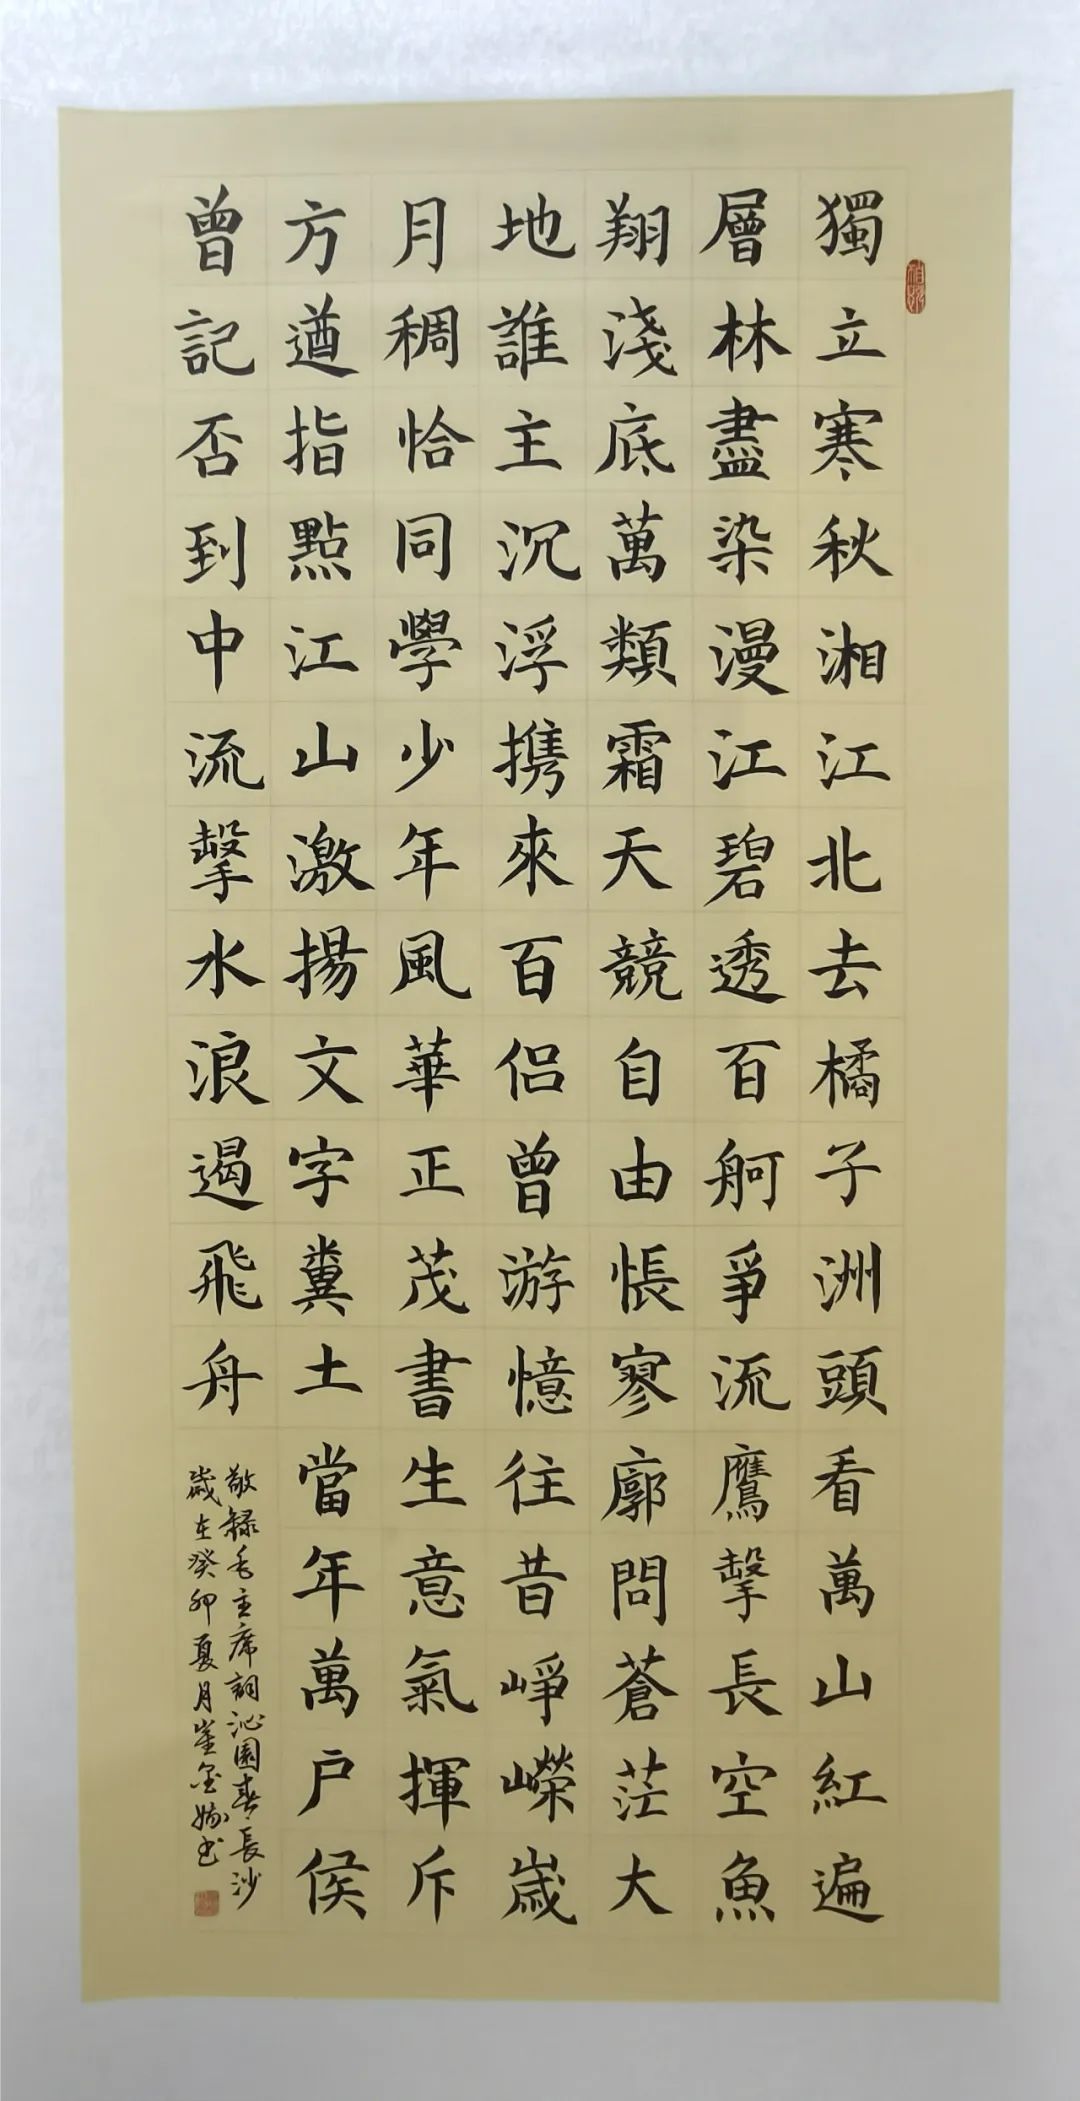 獨立寒秋湘江北去橘子洲頭看萬山紅遍
層林盡染漫江碧透百舸爭流鷹擊長空魚
翔淺底萬類霜天競自由悵寥廓問蒼茫大
地誰主沉浮携來百侶曾游憶往昔崢嶸歲
月稠恰同學少年風華正茂書生意氣揮斥
方遒指點江山激揚文字糞土當年萬戶侯
曾記否到中流擊水浪遏飛舟
敬録毛主席詞沁園春長沙
歲在癸卯夏月崔金書